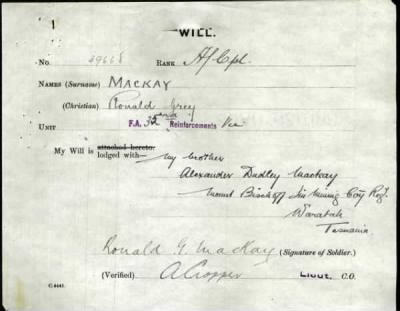 1
WILL.
No. 29668 RANK A/Cpl.
NAMES (Surname) MACKAY
(Christian) Ronald Grey
UNIT F.A. 35 Reinforcements Vic
My Will is attached hereto.
lodged with— My brother
Alexander Dudley Mackay
Mount Bischoff Tin Mining Coy Regd
Waratah
Tasmania
Ronald G. Mackay (Signature of Soldier.)
(Verified) A Cropper LIEUT. C.O.